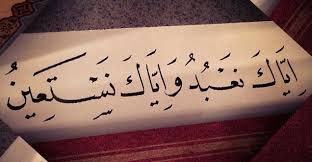 اِيَّاكَ نَعْبُدُ وَاِيَّاكَ نَسْتَعِينُ